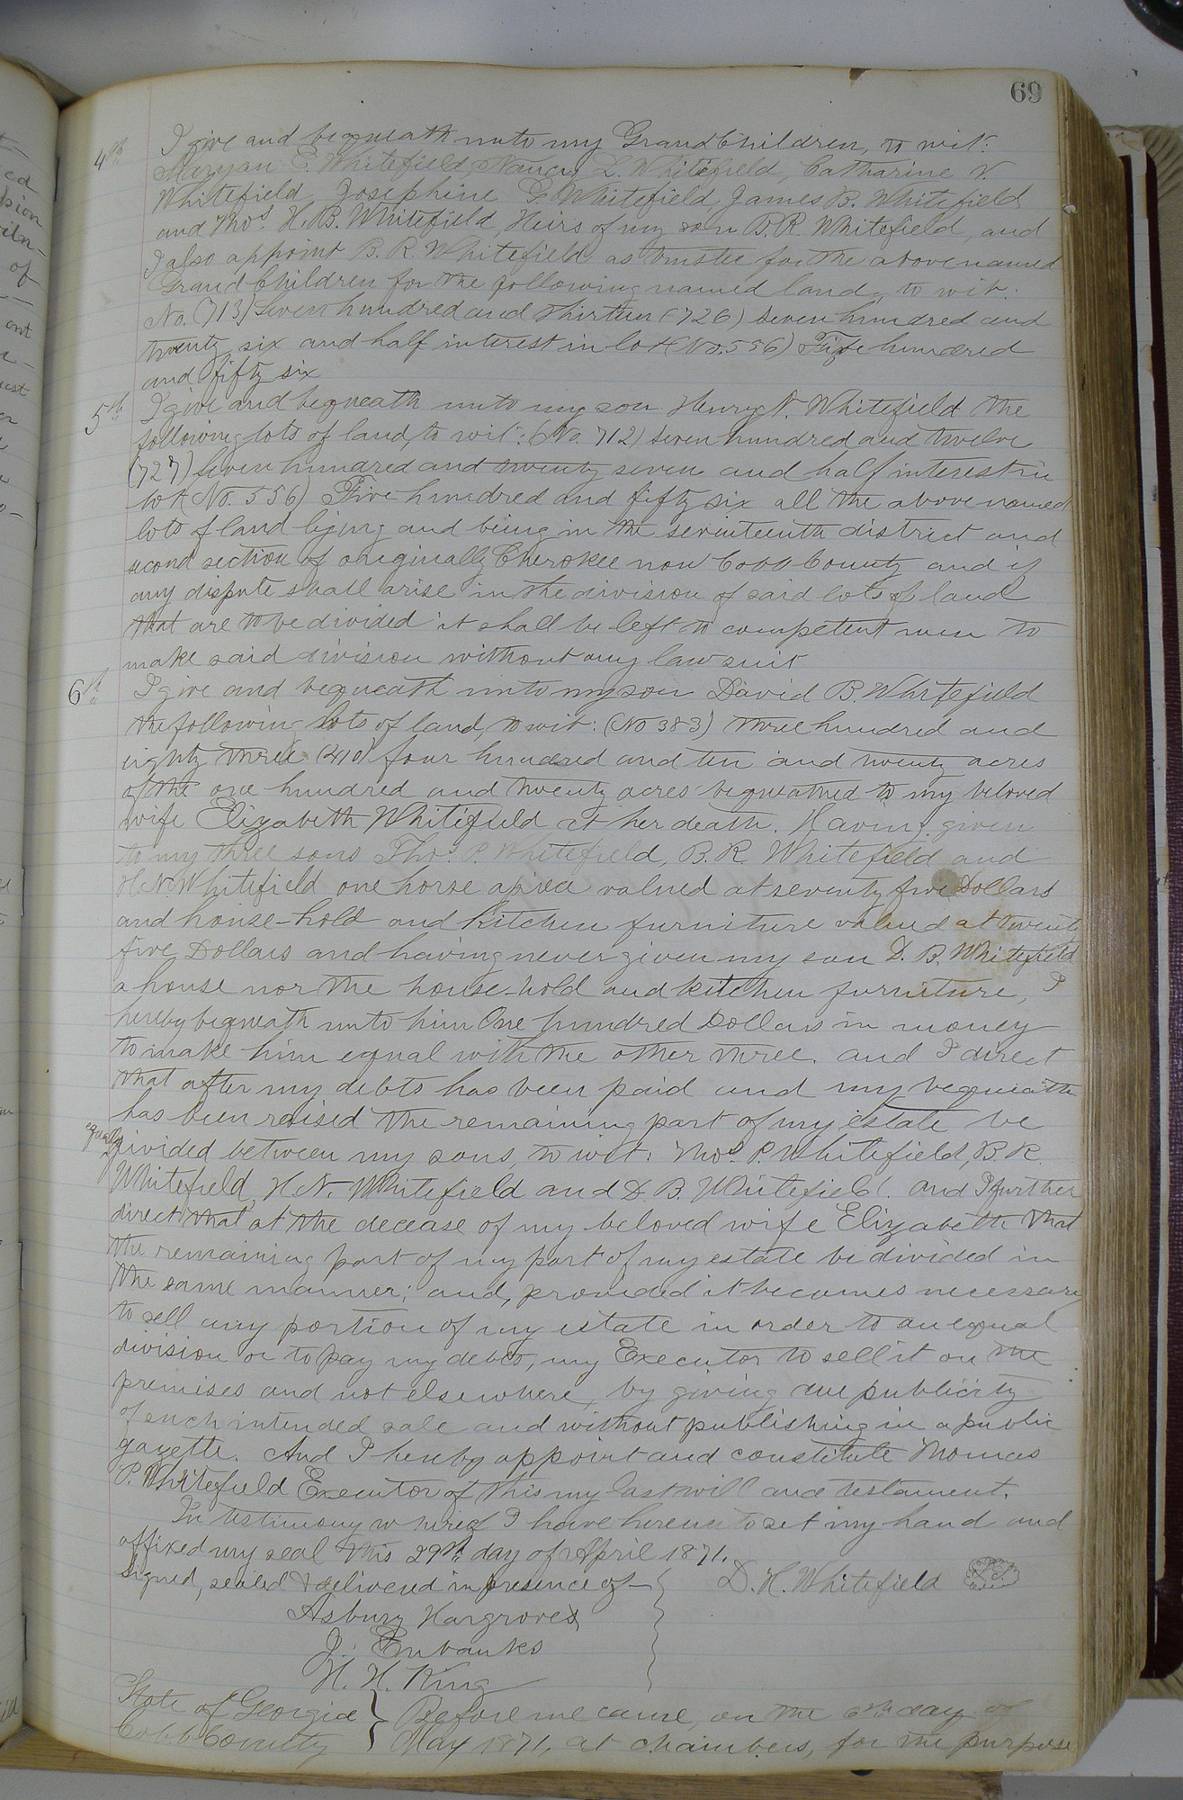 69
4th I give and bequeath unto my GrandChildren, to wit:
Maryan E. Whitefield, Nancy L. Whitefield, Catharine V.
Whitefield, Josephine G. Whitefield, James B. Whitefield
and Thos. H. B. Whitefield, Heirs of my son B. R. Whitefield, and
I also appoint B. R. Whitefield as trustee for the above named
Grand Children for the following named land, to wit:
No. (713) Seven hundred and thirteen (726) Seven hundred and
twenty six and half interest in lot (No. 556) Five hundred
and fifty six
5th I give and bequeath unto my son Henry N. Whitefield the
following lots of land, to wit: (No. 712) Seven hundred and twelve
(727) Seven hundred and twenty seven and half interest in
lot (No. 556) Five hundred and fifty six all the above named
lots of land lying and being in the seventeenth district and
second section of originally Cherokee now Cobb County and if
any dispute shall arise in the division of said lots of land
that are to be divided it shall be left to competent men to
make said division without any law suit
6th I give and bequeath unto my son David B. Whitefield
the followin lots of land, to wit: (No 383) three hundred and
eighty three (410) four hundred and ten and twenty acres
of the one hundred and twenty acres bequeathed to my beloved
wife Elizabeth Whitefield at her death. Having given
to my three sons Thos. P. Whitefield, B. R. Whitefield and
H. N. Whitefield one horse apiece valued at seventy five Dollars
and house-hold and kitchen furniture valued at twenty
five Dollars and having never given my son D. B. Whitefield
a house nor the house-hold and kitchen furniture, I
hereby bequeath unto him One hundred Dollars in money
to make him equal with the other three. and I direct
that after my debts has been paid and my bequeaths
has been raised the remaining part of my estate be
equally divided between my sons, to wit: Thos. P. Whitefield, B. R.
Whitefield, H. N. Whitefield and D. B. Whitefield. and I further
direct that at the decease of my beloved wife Elizabeth that
the remaining part of my part of my estate be divided in
the same manner; and, provided it becomes necessary
to sell any portion of my estate in order to an equal
division or to pay my debts, my Executor to sell it on the
premises and not elsewhere, by giving due publicity
of such intended sale and without publishing in a public
gazette. And I hereby appoint and constitute Thomas
P. Whitefield Executor of this my last will and testament.
In testimony whereof I have hereunto set my hand and
affixed my seal this 29th day of April 1871.
Signed, sealed & delivered in presence of D. H. Whitefield
Asbury Hargroves
J. Eubanks
H. H. King
State of Georgia } Before me came, on the day of
Cobb County } May 1871, at chambers, for the purpose